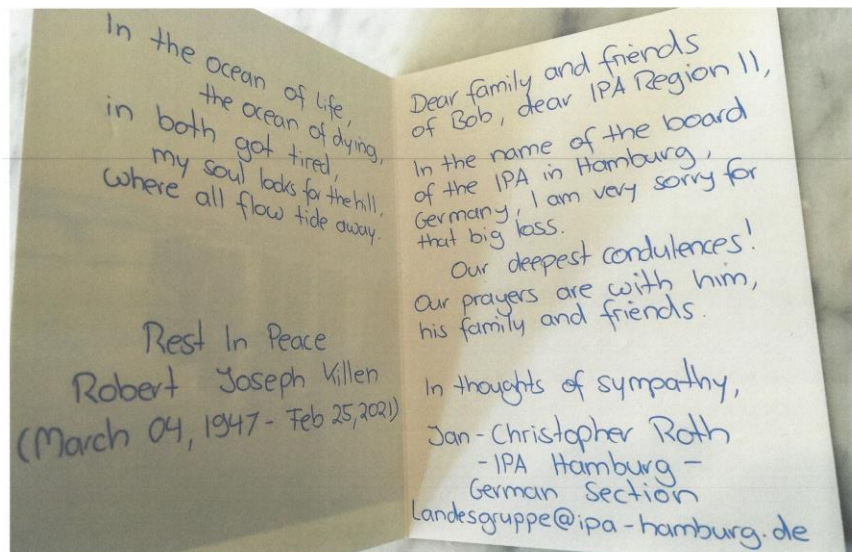 In the ocean of life,
the ocean of dying,
in both got tired,
my soul looks for the hill,
where all flow tide away.
Rest In Peace
Robert Joseph Killen
(March 04, 1947 - Feb 25, 2021)
Dear family and friends
of Bob, dear IPA Region 11,
In the name of the board
of the IPA in Hamburg,
Germany, I am very sorry for
that big loss.
Our deepest condulences!
Our prayers are with him,
his family and friends.
In thoughts of sympathy,
Jan-Christopher Roth
- IPA Hamburg -
German Section
Landesgruppe@ipa-hamburg.de